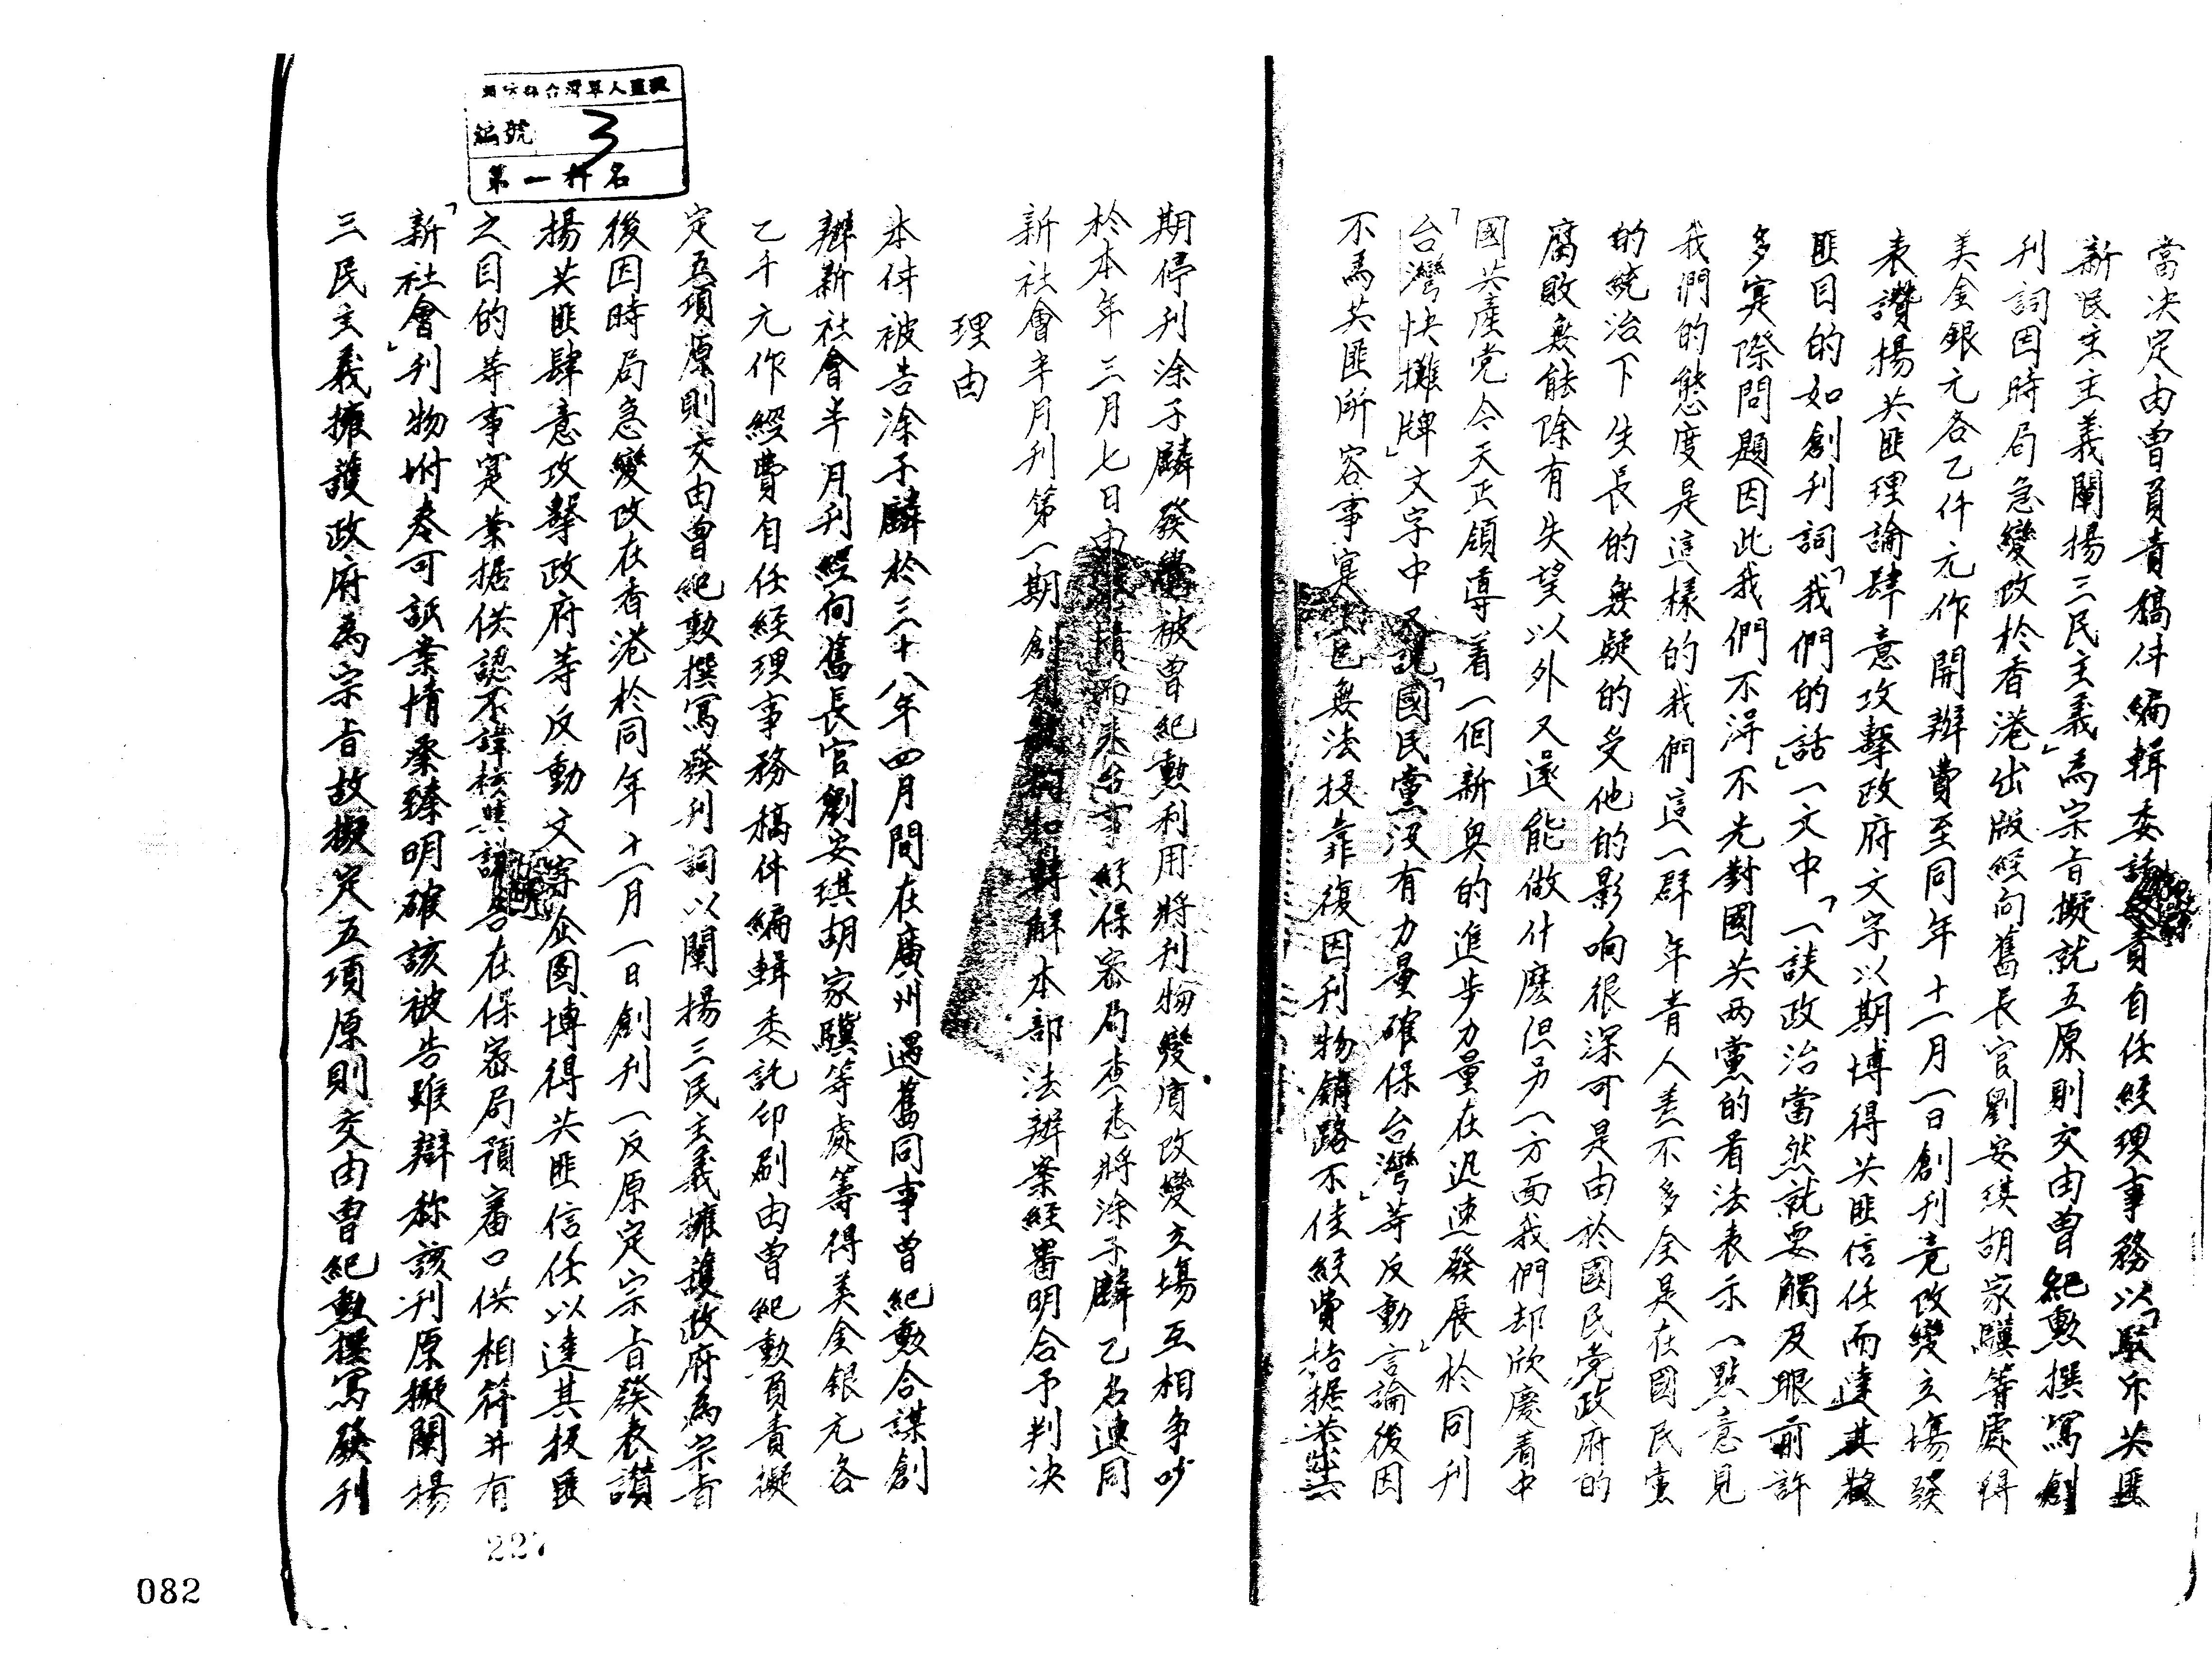 當決定由曾負責稿件編輯委託負責自任經理事務以「駁斥共匪
新民主主義闡揚三民主義」為宗旨擬就五原則交由曾紀勲撰寫創
刊詞因時局急變改於香港出版經向舊長官劉安琪胡家驥等處得
美金銀元各乙仟元作開辦費至同年十一月一日創刊竟改變立場發
表讚揚共匪理論肆意攻擊政府文字以期博得共匪信任而達其投
匪目的如創刊詞「我們的話」一文中「一談政治當然就要觸及眼前許
多寔際問題因此我們不淂不先對國共两黨的看法表示一點意見
我們的態度是這樣的我們這一群年青人差不多全是在國民黨
的統治下生長的無疑的受他的影响很深可是由於國民党政府的
腐敗無能除有失望以外又還能做什麽但另一方面我們却欣慶看中
國共產党今天正領導着一個新興的進步力量在迅速發展」於同刊
「台灣快攤牌」文字中又說「國民黨沒有力量確保台灣」等反動言論後因
不為共匪所容事寔上已無法投靠復因刊物銷路不佳經費拮据
期停刊涂子麟發覺被曾紀勲利用將刊物變質改變立場互相争吵
於本年三月七日由 情而來台事經保密局查悉將涂子麟乙名連同
新社會半月刊第一期創刊 解本部法辦案經審明合予判决
理由
本件被告涂子麟於三十八年四月間在廣州遇舊同事曾紀勲合謀創
辦新社會半月刊經向舊長官劉安琪胡家驥等處籌得美金銀元各
乙千元作經費自任經理事務稿件編輯委託印刷由曾紀勲負責擬
定五項原則交由曾紀勲撰寫發刊詞以闡揚三民主義擁護政府為宗旨
後因時局急變改在香港於同年十一月一日創刊一反原定宗旨發表讚
揚共匪肆意攻擊政府等反動文字企圖博得共匪信任以達其投匪
之目的等事寔業据供認不諱核與 在保密局預審口供相符并有
「新社會」刊物坿卷可証案情臻明確該被告雖辯称該刊原擬闡揚
三民主義擁護政府為宗旨故擬定五項原則交由曾紀勲撰寫發刊
編號 3
第一科名
227
082